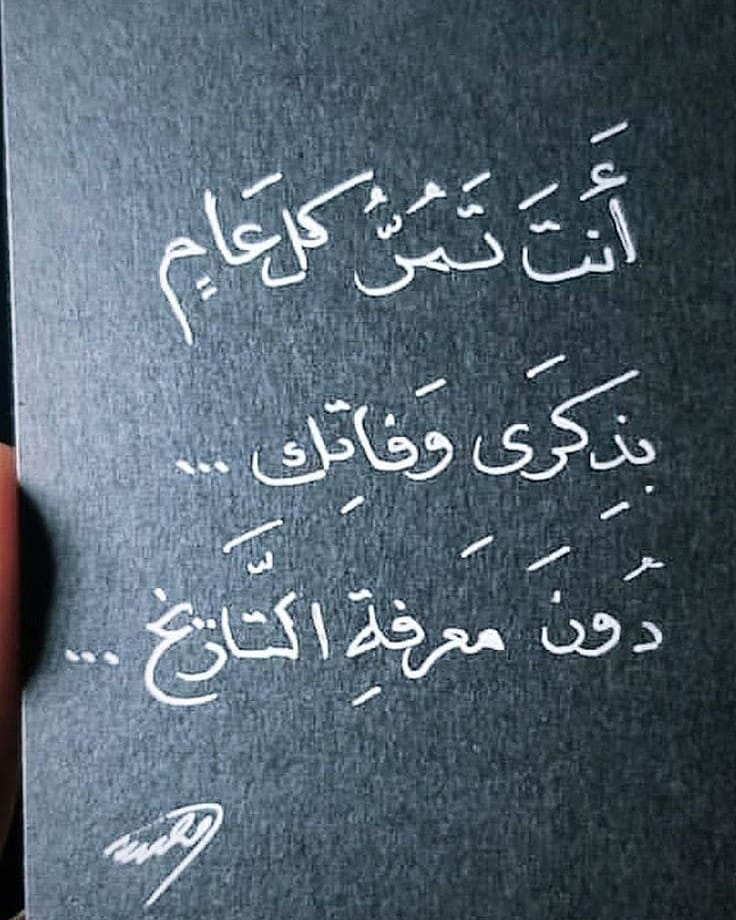 أَنتَ تَمُرُّ كل عَامٍ
بِذِكرَى وَفاتِك ...
دُونَ مَعرفةِ التَّاريخ ...